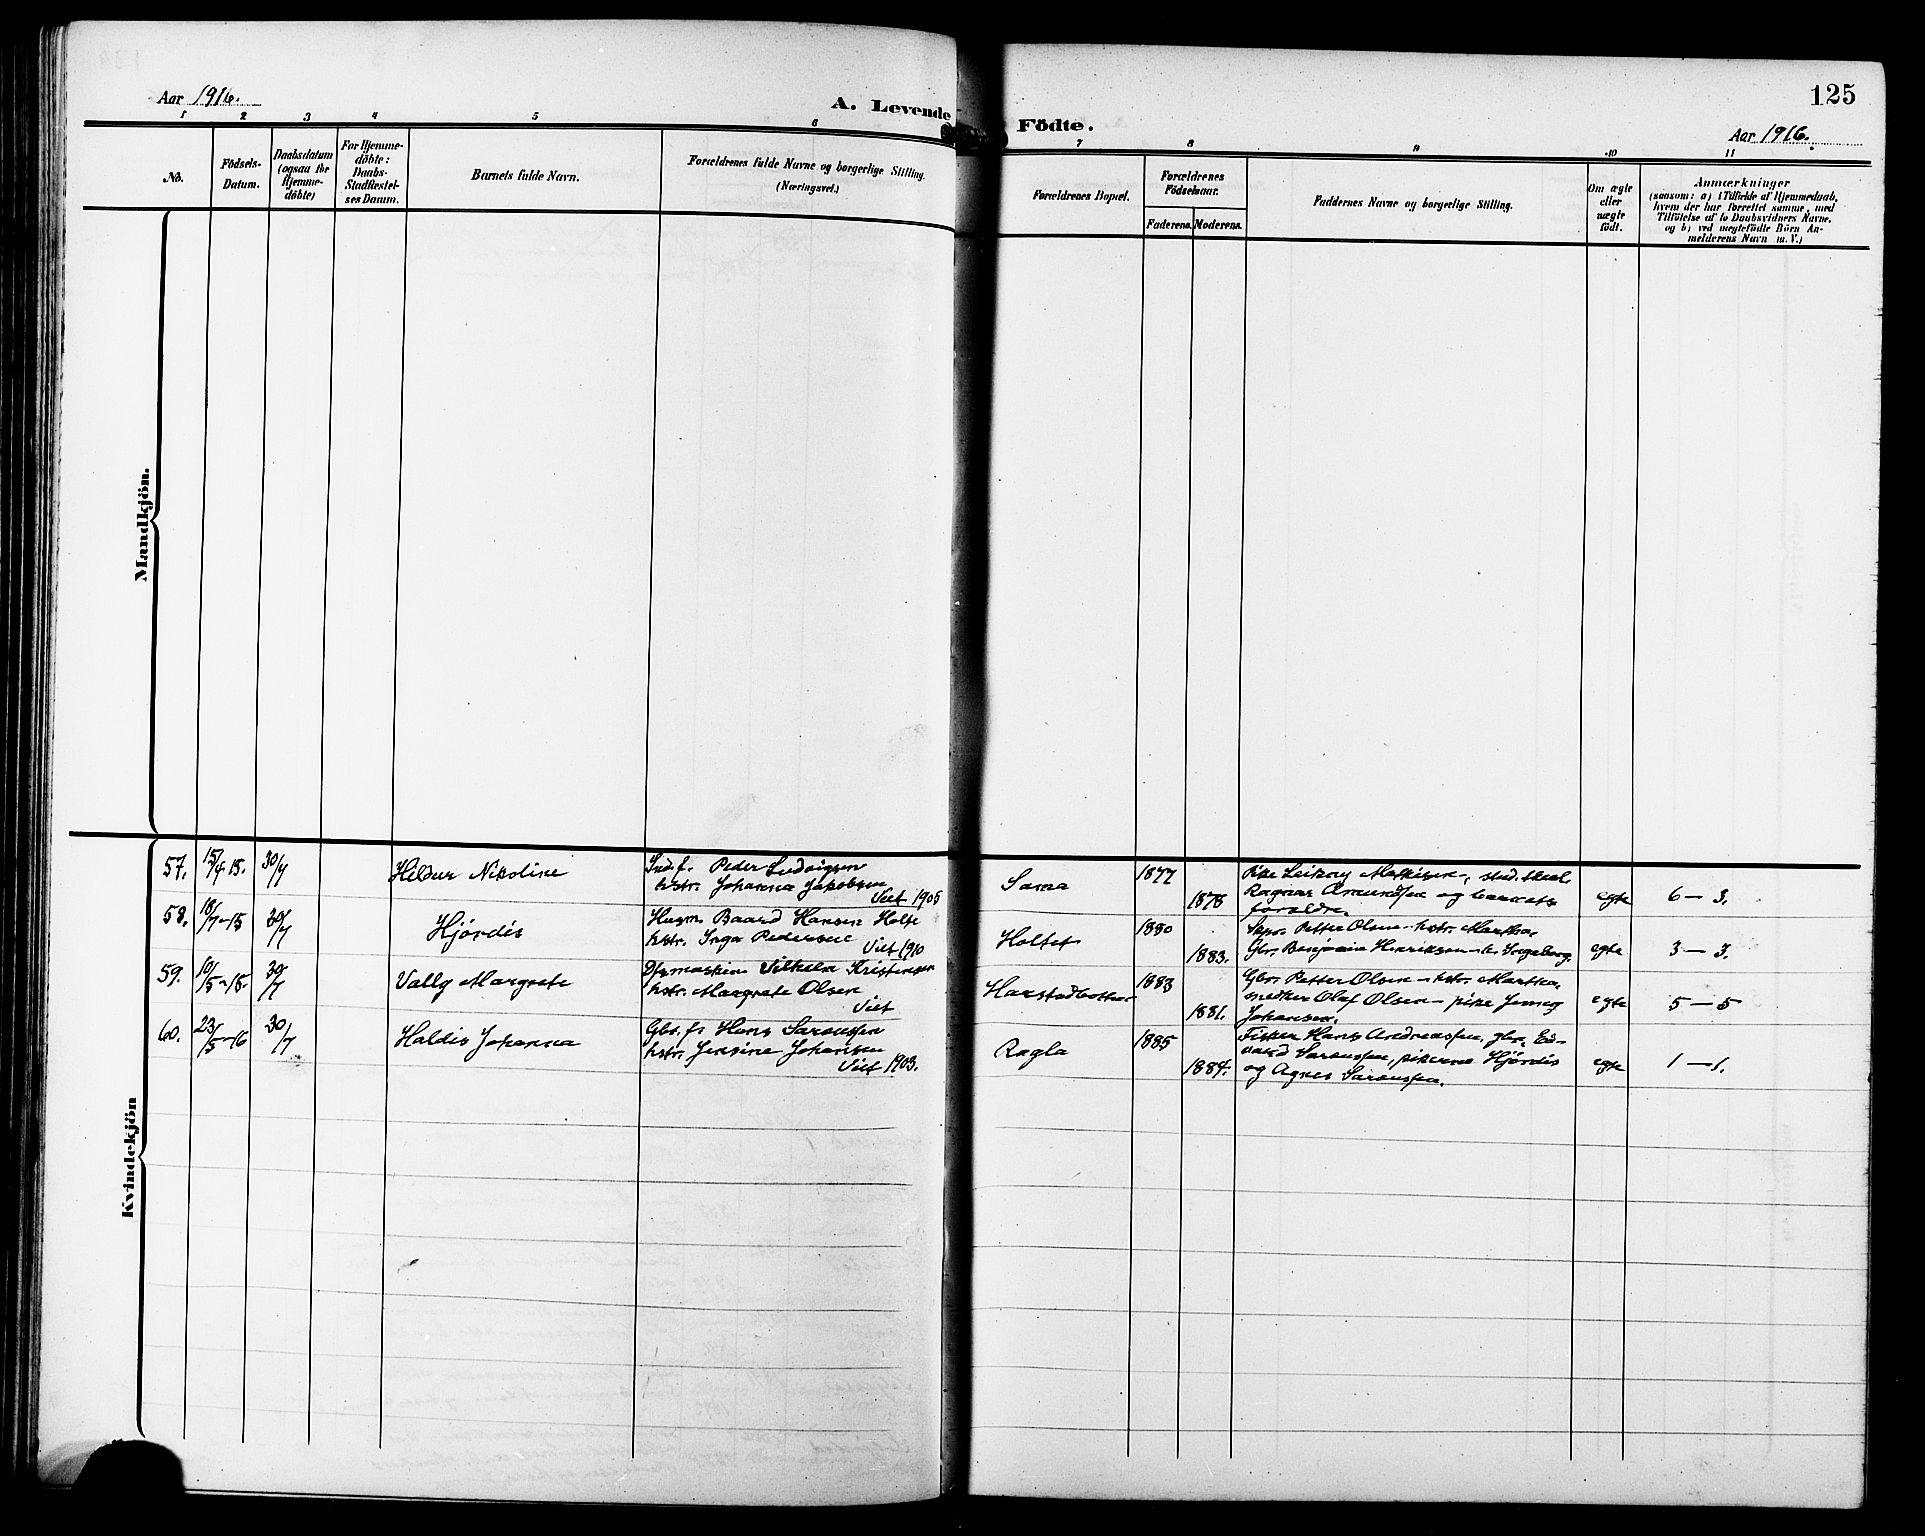 Aar 1916.
A. Levende Födte.
125
Aar 1916.
1 2 3 4 5 6 7 8 9 10 11
No.
Födsels-
Datum.
Daabsdatum
(ogsaa for
Hjemme-
döbte)
For Hjemme-
döbte:
Daabs-
Stadfæstel-
ses Datum.
Barnets fulde Navn.
Forældrenes fulde Navne og borgerlige Stilling.
(Næringsvei.)
Forældrenes Bopæl.
Forældrenes
Födselsaar.
Faderens. Moderens.
Faddernes Navne og borgerlige Stilling.
Om ægte
eller
uægte
födt.
Anmærkninger
(saasom: a) i Tilfælde af Hjemmedaab,
hvem der har forrettet samme, med
Tilföielse af to Daabsvidners Navne,
og b) ved uægtefödte Börn An-
melderens Navn m. V.)
Mandkjön.
Kvindekjön
57. 15/4 15. 30/7 Hildur Nikoline
Indf. Peder Ludvigsen
hstr. Johanna Jakobsen
Viet 1905
Sama 1877 1878
Ragnar Amundsen og barnets
foreldre.
egte 6 — 3.
58. 18/7-15 30/7 Hjørdis
Husm. Baard Hansen Holte
hstr. Inga Pedersen
Viet 1910
Holtet 1880 1883.
Petter Olsen - hstr. Martha,
Gbr. Benjamin Henriksen - h. Ingeborg.
egte 3 — 3.
59. 10/5-15. 30/7 Vally Margrete
Vilhelm Kristensen
hstr. Margrete Olsen
Viet
Harstadbotten 1883 1881.
Gbr. Petter Olsen - hstr. Martha,
Olaf Olsen - pike Jenny
Johansen.
egte 5 — 5
60. 23/5-16 30/7 Haldis Johanna
Gbr. f. Hans Sarassen
hstr. Jensine Johansen
Viet 1903.
Ragla 1885 1884.
Fisker Hans Andreassen, gbr. Ed-
vard Sarassen, pikerne Hjørdis
og Agnes Sarassen.
egte 1 — 1.